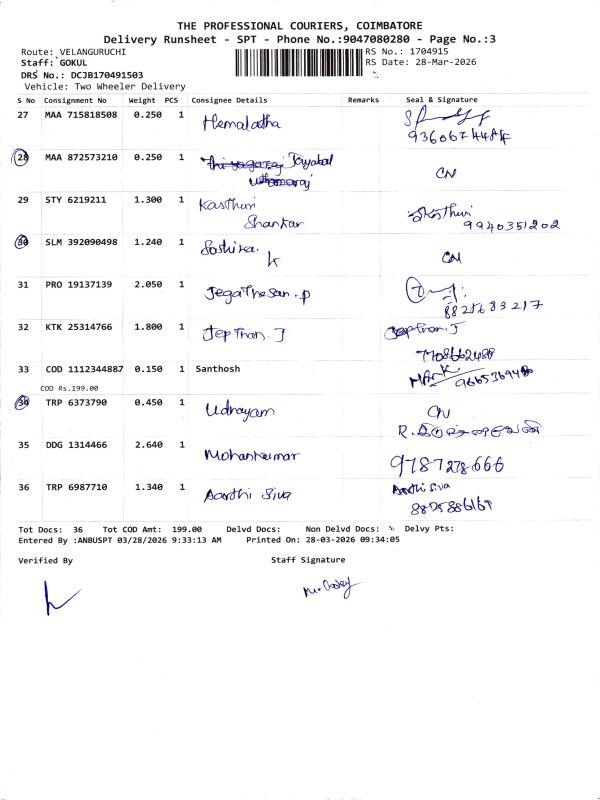 THE PROFESSIONAL COURIERS, COIMBATORE
Delivery Runsheet - SPT - Phone No.:9047080280 - Page No.:3
Route: VELANGURUCHI RS No.: 1704915
Staff: GOKUL RS Date: 28-Mar-2026
DRS No.: DCJB170491503
Vehicle: Two Wheeler Delivery
S No Consignment No Weight PCS Consignee Details Remarks Seal & Signature
27 MAA 715818508 0.250 1 Hemalatha
28 MAA 872573210 0.250 1 Jayabal CN
29 STY 6219211 1.300 1 Kasthuri Kasthuri
Shankar 9940351202
30 SLM 392090498 1.240 1 CN
K
31 PRO 19137139 2.050 1 Jegathesan.p
32 KTK 25314766 1.800 1 Jepthan.J Jepthan.J
7708662488
33 COD 1112344887 0.150 1 Santhosh
COD Rs.199.00
34 TRP 6373790 0.450 1 Udhayam CN
35 DDG 1314466 2.640 1 Mohankumar 9787278666
36 TRP 6987710 1.340 1 Aarthi Siva Aarthi Siva
Tot Docs: 36 Tot COD Amt: 199.00 Delvd Docs: Non Delvd Docs: Delvy Pts:
Entered By :ANBUSPT 03/28/2026 9:33:13 AM Printed On: 28-03-2026 09:34:05
Verified By Staff Signature